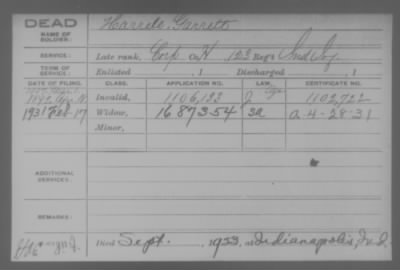 DEAD
NAME OF SOLDIER: Harrell, Garrett
SERVICE: Late rank, Corp Co. H, 123 Reg't Ind Inf.
TERM OF SERVICE: Enlisted , 1 Discharged , 1
DATE OF FILING. CLASS. APPLICATION NO. LAW. CERTIFICATE NO.
1892 Apr Invalid, 1106,133 1102,722
1931 Feb-17 Widow, 1687354 a-4-28-31
Minor,
ADDITIONAL SERVICES:
REMARKS:
Died Sept. 1933, at Indianapolis, Ind.